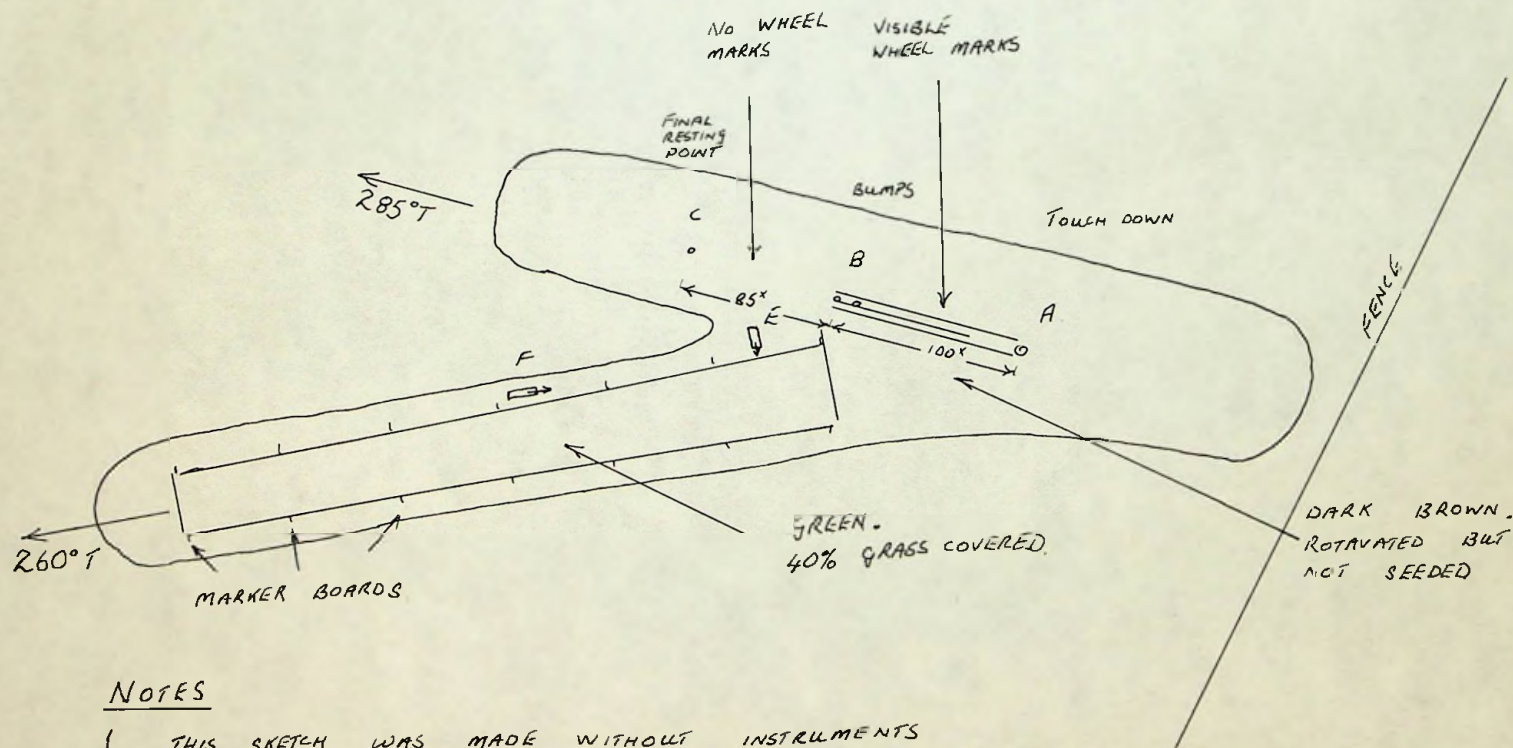 NO WHEEL
MARKS
VISIBLE
WHEEL MARKS
FINAL
RESTING
POINT
285°T
BUMPS
TOUCH DOWN
C
B
A
FENCE
85ˣ
E
100ˣ
F
260°T
MARKER BOARDS
GREEN.
40% GRASS COVERED.
DARK BROWN.
ROTAVATED BUT
NOT SEEDED
NOTES
1 THIS SKETCH WAS MADE WITHOUT INSTRUMENTS